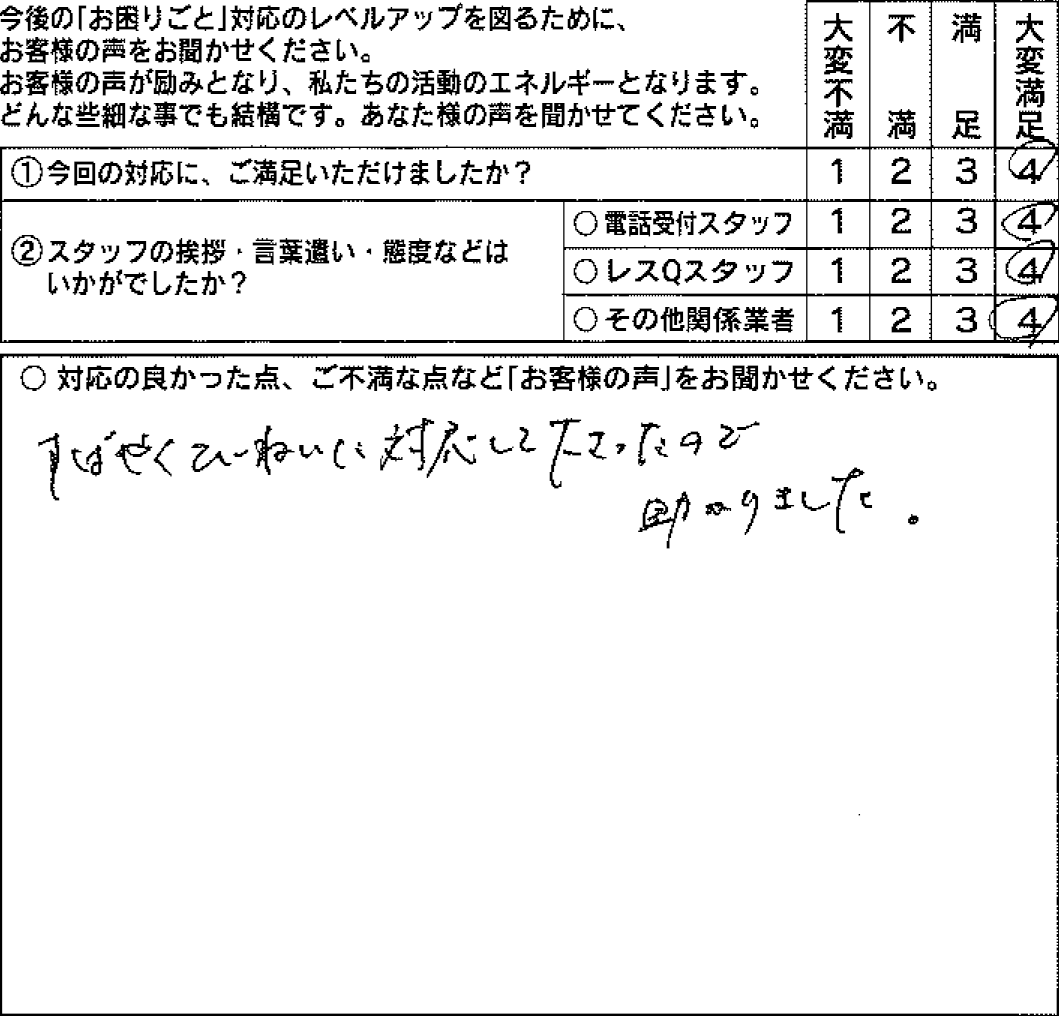 今後の「お困りごと」対応のレベルアップを図るために、
お客様の声をお聞かせください。
お客様の声が励みとなり、私たちの活動のエネルギーとなります。
どんな些細な事でも結構です。あなた様の声を聞かせてください。
大変不満 不満 満足 大変満足
①今回の対応に、ご満足いただけましたか? 1 2 3 4
②スタッフの挨拶・言葉遣い・態度などは
いかがでしたか?
○電話受付スタッフ 1 2 3 4
○レスQスタッフ 1 2 3 4
○その他関係業者 1 2 3 4
○ 対応の良かった点、ご不満な点など「お客様の声」をお聞かせください。
すばやくていねいに対応して下さったので
助かりました。